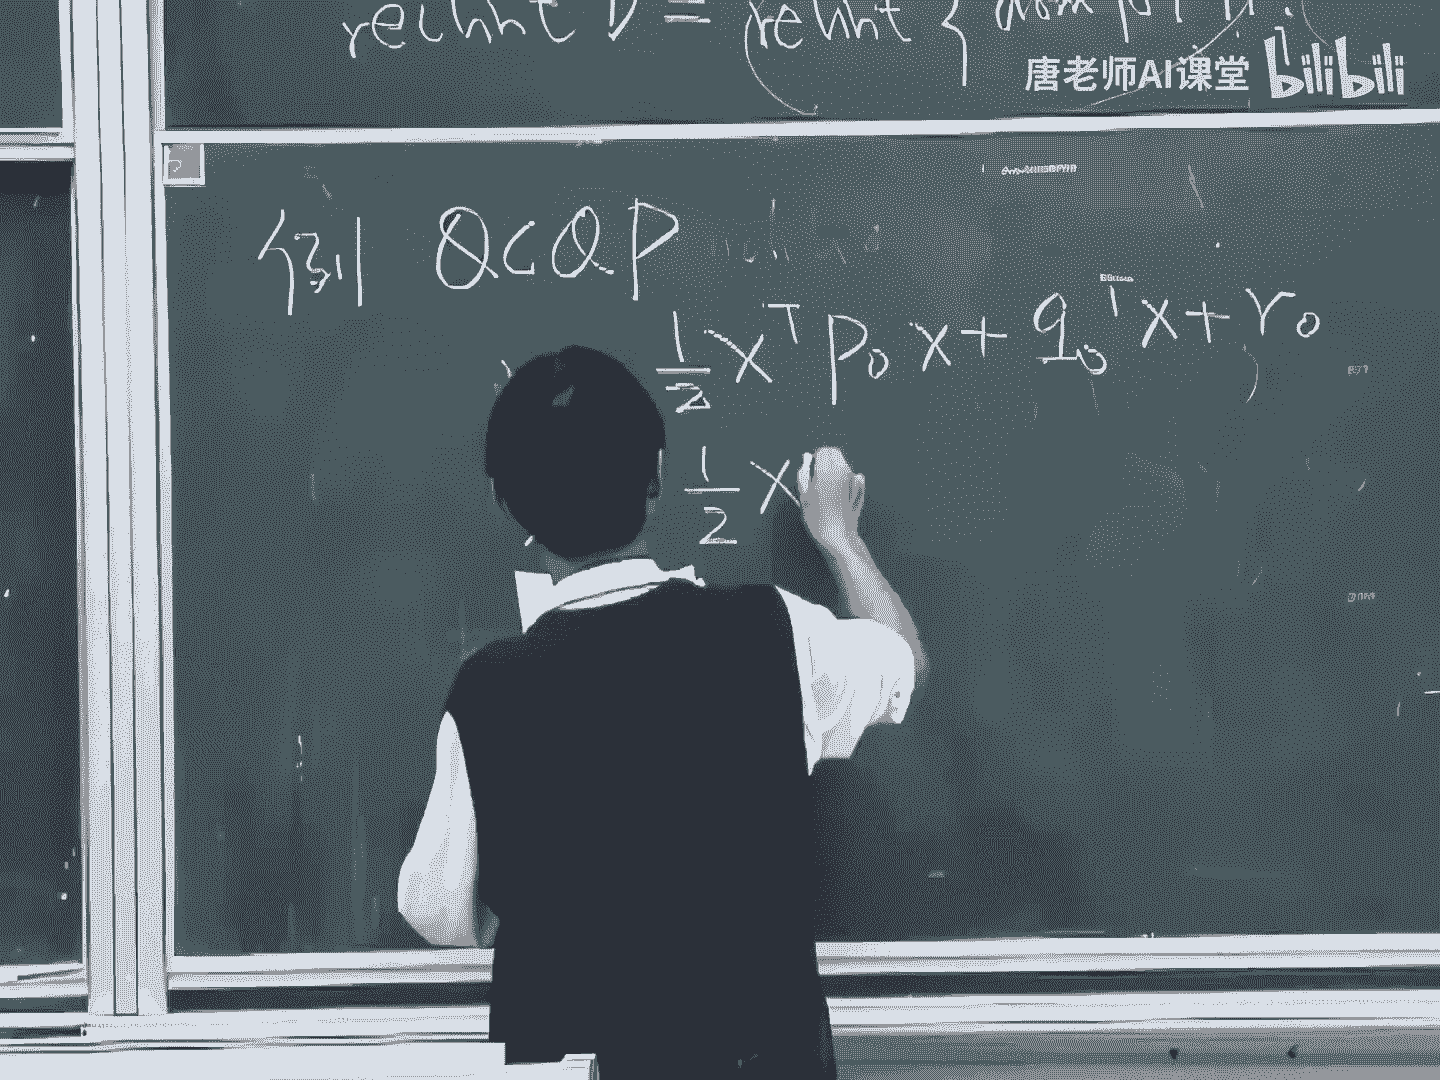 relint D = relint {
唐老师AI课堂 bilibili
例 QCQP
1/2 x^T P_0 x + q_0^T x + r_0
1/2 x